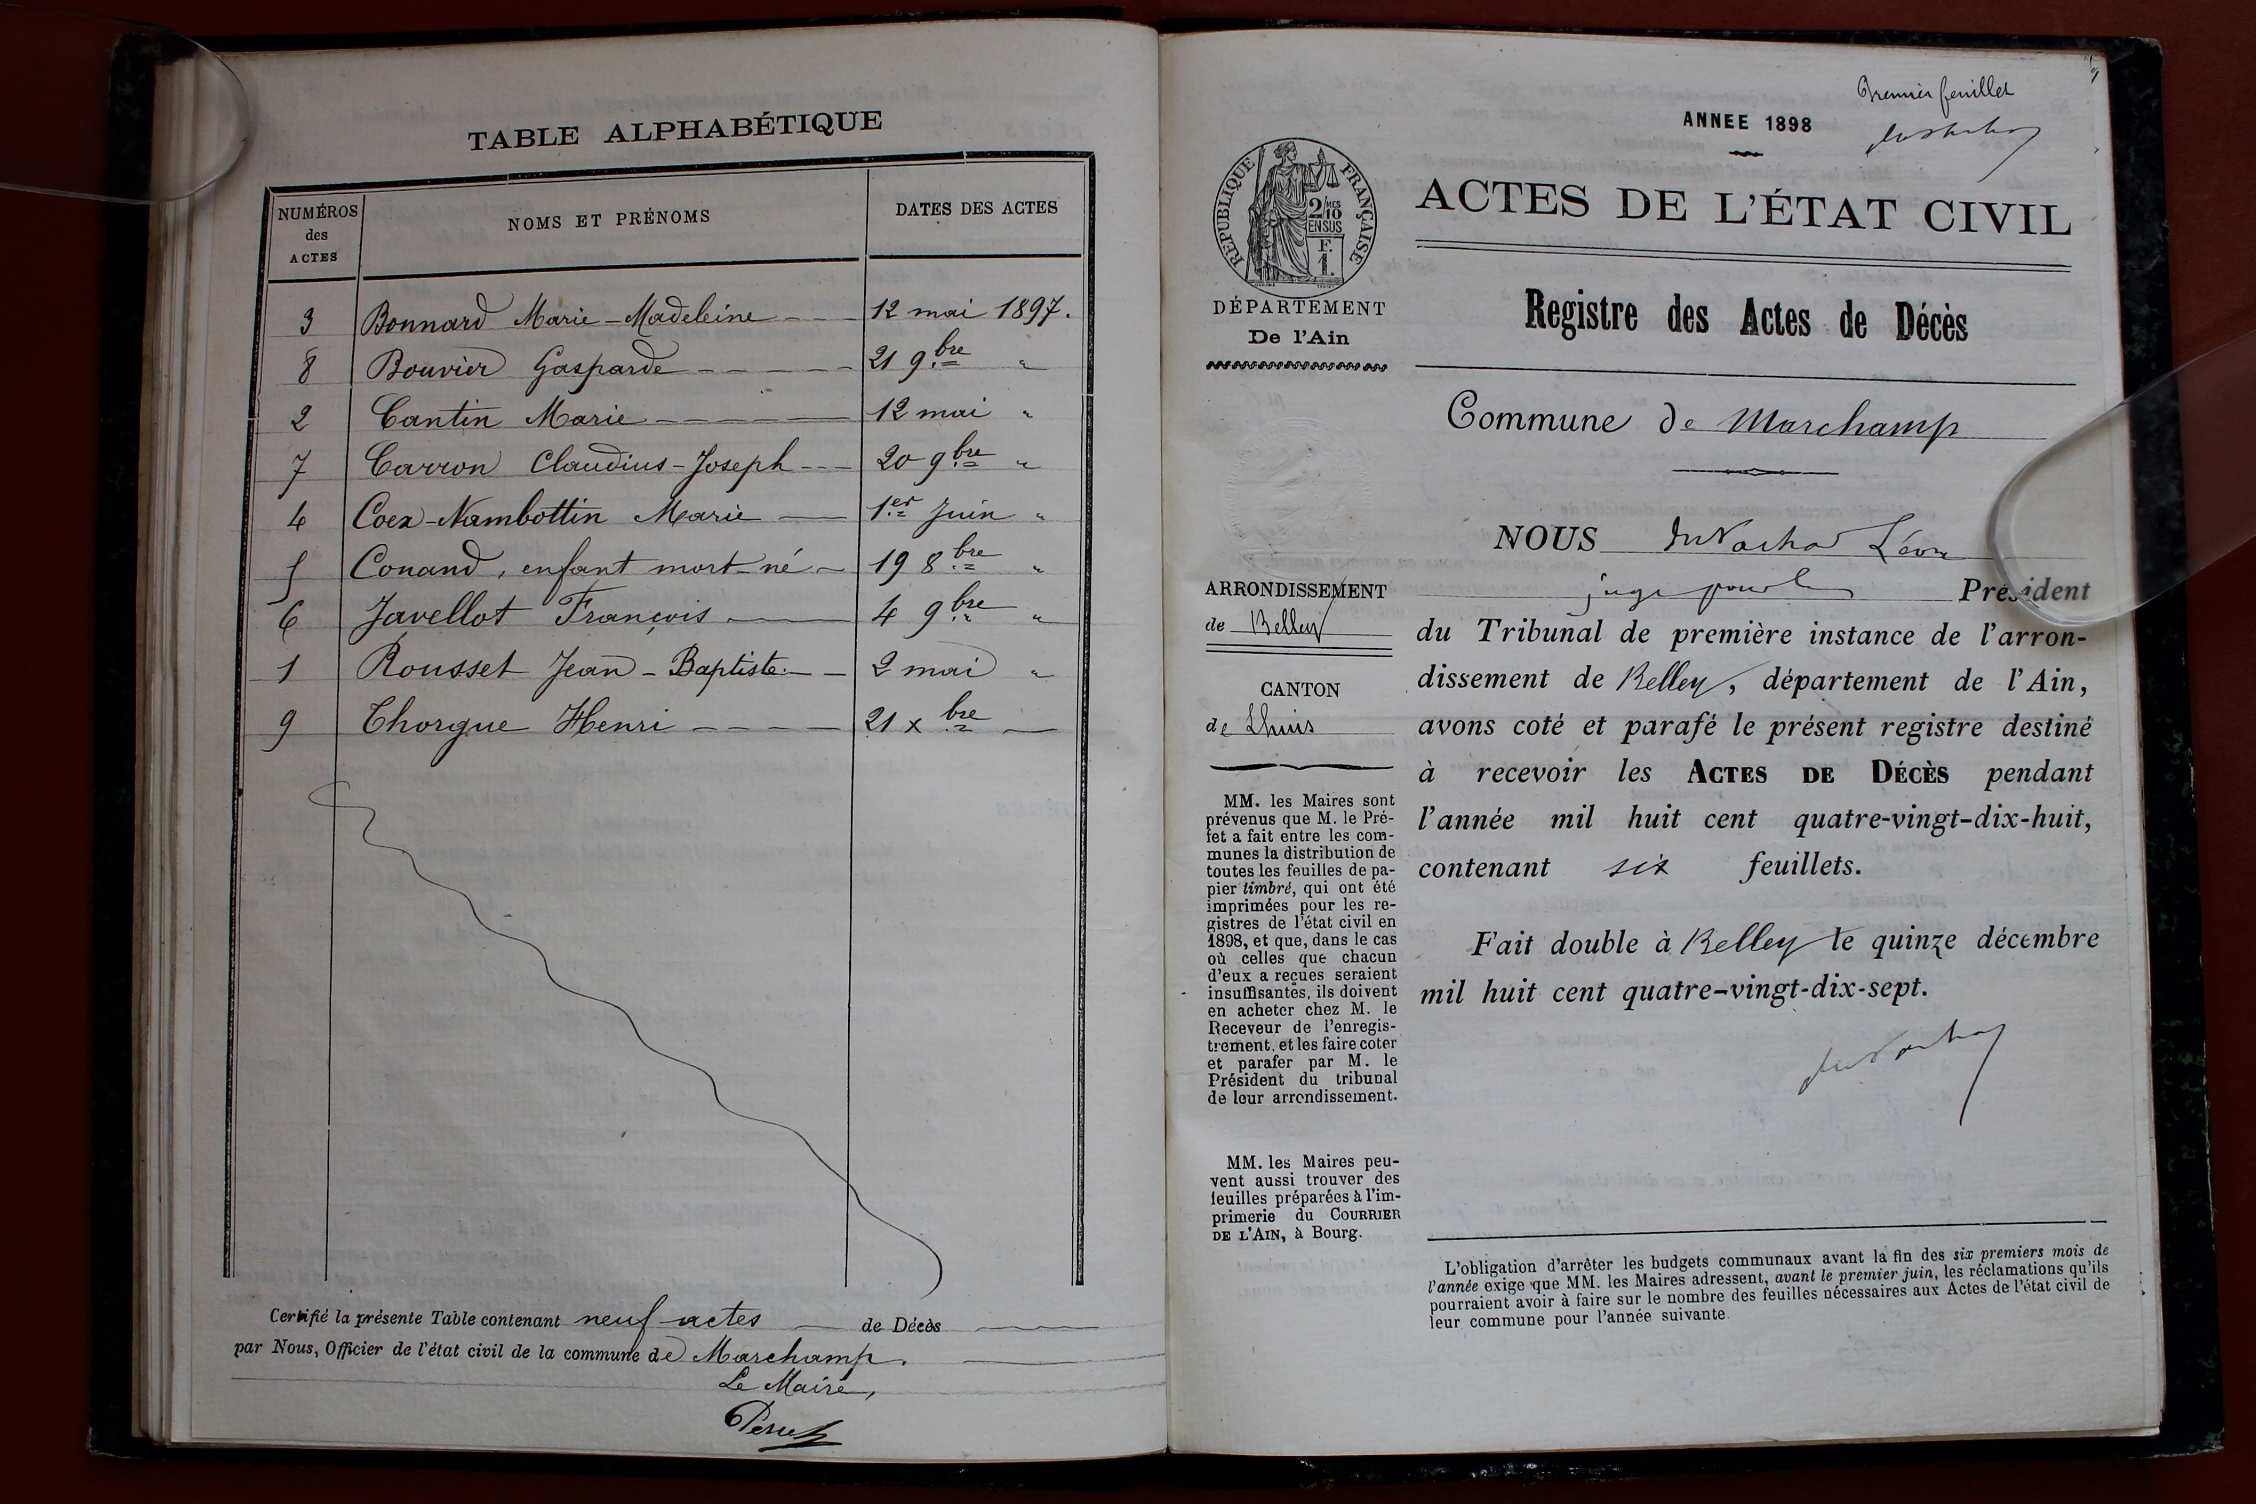 TABLE ALPHABÉTIQUE
NUMÉROS
des
ACTES
NOMS ET PRÉNOMS
DATES DES ACTES
3 Bonnard Marie-Madeleine 12 mai 1897.
8 Bouvier Gasparde 21 9.bre "
2 Cantin Marie 12 mai "
7 Carron Claudius-Joseph 20 9.bre "
4 Coex-Nambottin Marie 1.er Juin "
5 Conand, enfant mort-né 19 8.bre "
6 Javellot François 4 9.bre "
1 Rousset Jean-Baptiste 2 mai "
9 Thorgue Henri 21 x.bre —
Certifié la présente Table contenant neuf actes de Décès
par Nous, Officier de l'état civil de la commune de Marchamp.
Le Maire,
Premier feuillet
ANNEE 1898
RÉPUBLIQUE FRANÇAISE
2/10MES
EN SUS
F.
1.
DÉPARTEMENT
De l'Ain
ARRONDISSEMENT
de Belley
CANTON
de Lhuis
MM. les Maires sont
prévenus que M. le Pré-
fet a fait entre les com-
munes la distribution de
toutes les feuilles de pa-
pier timbré, qui ont été
imprimées pour les re-
gistres de l'état civil en
1898, et que, dans le cas
où celles que chacun
d'eux a reçues seraient
insuffisantes, ils doivent
en acheter chez M. le
Receveur de l'enregis-
trement, et les faire coter
et parafer par M. le
Président du tribunal
de leur arrondissement.
MM. les Maires peu-
vent aussi trouver des
feuilles préparées à l'im-
primerie du COURRIER
DE L'AIN, à Bourg.
ACTES DE L'ÉTAT CIVIL
Registre des Actes de Décès
Commune de Marchamp
NOUS Léon
juge pour le Président
du Tribunal de première instance de l'arron-
dissement de Belley, département de l'Ain,
avons coté et parafé le présent registre destiné
à recevoir les ACTES DE DÉCÈS pendant
l'année mil huit cent quatre-vingt-dix-huit,
contenant six feuillets.
Fait double à Belley le quinze décembre
mil huit cent quatre-vingt-dix-sept.
L'obligation d'arrêter les budgets communaux avant la fin des six premiers mois de
l'année exige que MM. les Maires adressent, avant le premier juin, les réclamations qu'ils
pourraient avoir à faire sur le nombre des feuilles nécessaires aux Actes de l'état civil de
leur commune pour l'année suivante.